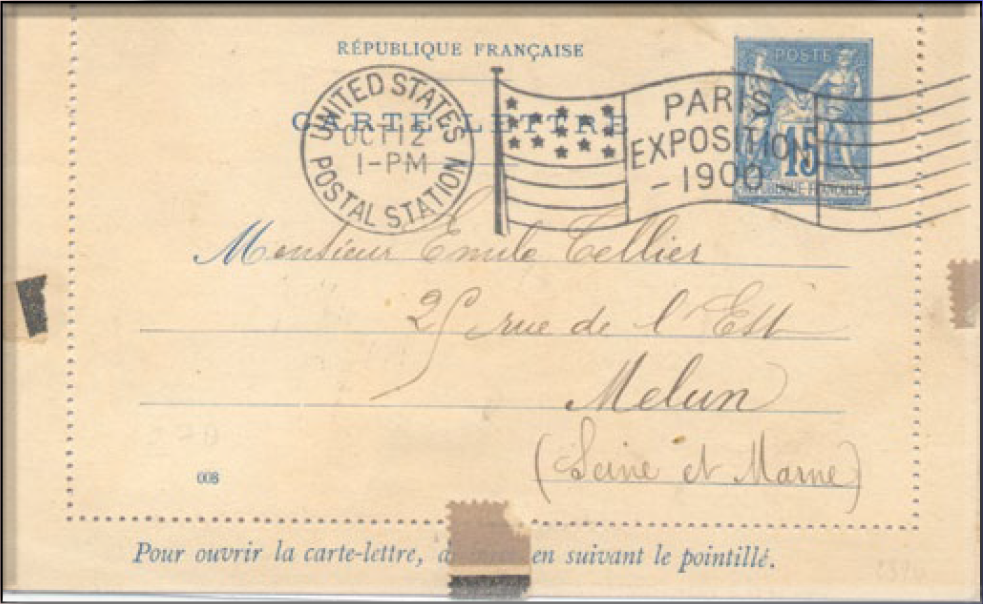 RÉPUBLIQUE FRANÇAISE
CARTE-LETTRE
UNITED STATES
OCT 12
1-PM
POSTAL STATION
PARIS
EXPOSITION
-1900
POSTE
15
REPUBLIQUE FRANÇAISE
Monsieur Emile Tellier
25 rue de l'Est
Melun
(Seine et Marne)
008
Pour ouvrir la carte-lettre, en suivant le pointillé.